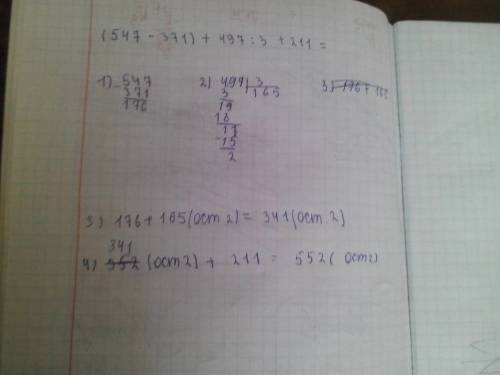 (547 - 371) + 497 : 3 + 211 =
1) 547 2) 497 3 3) 176 + 165
- 371 3 165
176 19
18
17
-15
2
3) 176 + 165 (ост 2) = 341 (ост 2)
341
4) 552 (ост 2) + 211 = 552 (ост 2)